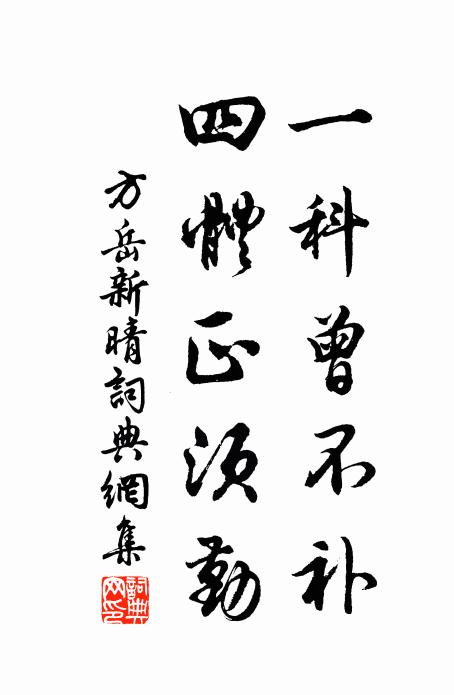 一科曾不补
四體正須勤
方岳新晴詞典網集
詞典網印